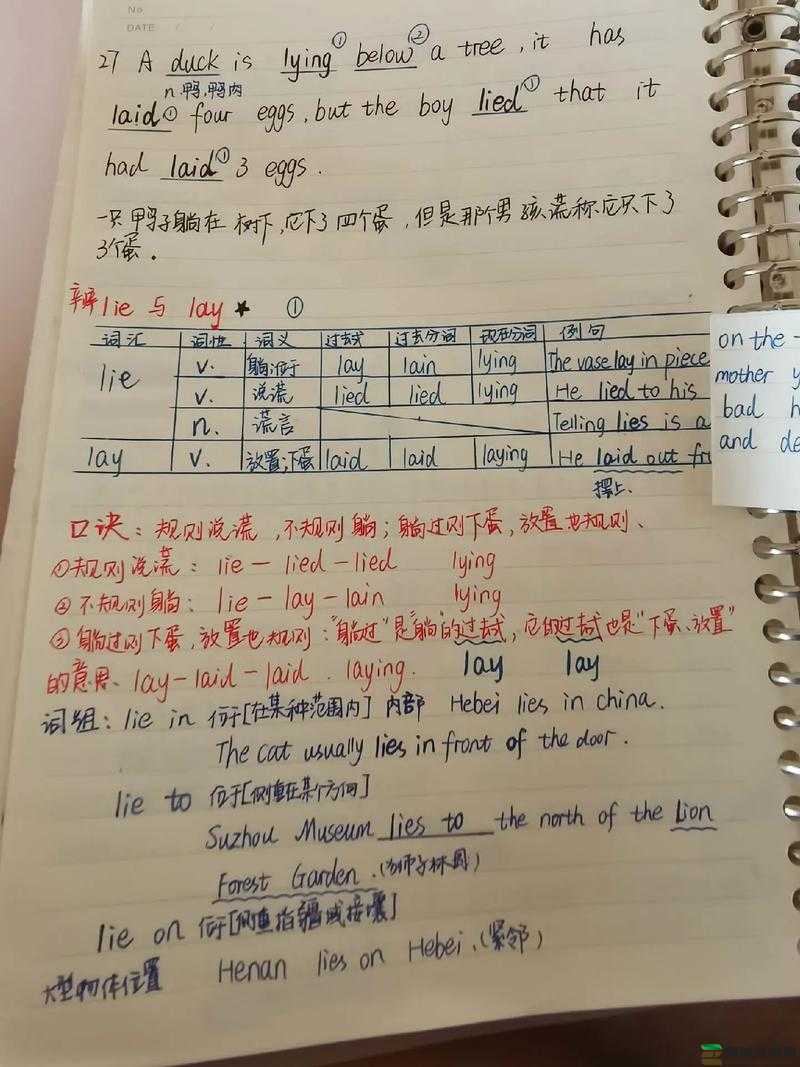 No
DATE
27 A duck is lying① below② a tree, it has
n.鸭,鸭肉
laid① four eggs, but the boy lied① that it
had laid① 3 eggs.
一只鸭子躺在树下,它下了四个蛋,但是那个男孩谎称它只下了
3个蛋。
辨lie与lay★ ①
词汇 词性 词义 过去式 过去分词 现在分词 例句
lie v. 躺;位于 lay lain lying The vase lay in piece
v. 说谎 lied lied lying He lied to his
n. 谎言 Telling lies is a
lay v. 放置;下蛋 laid laid laying He laid out fr
摆上.
on the
mother y
bad h
and de
口诀:规则说谎,不规则躺;躺过则下蛋,放置也规则、
①规则说谎:lie—lied—lied lying
②不规则躺:lie—lay—lain lying
③躺过则下蛋,放置也规则:"躺过"是"躺"的过去式,它的过去式也是"下蛋、放置"
的意思、lay—laid—laid.laying. lay lay
词组:lie in 位于[在某种范围内]内部 Hebei lies in china.
The cat usually lies in front of the door.
lie to 位于[侧重在某个方向]
Suzhou Museum lies to the north of the Lion
Forest Garden.(狮子林园)
lie on 位于[侧重指疆域接壤]
大型物体位置 Henan lies on Hebei.(紧邻)